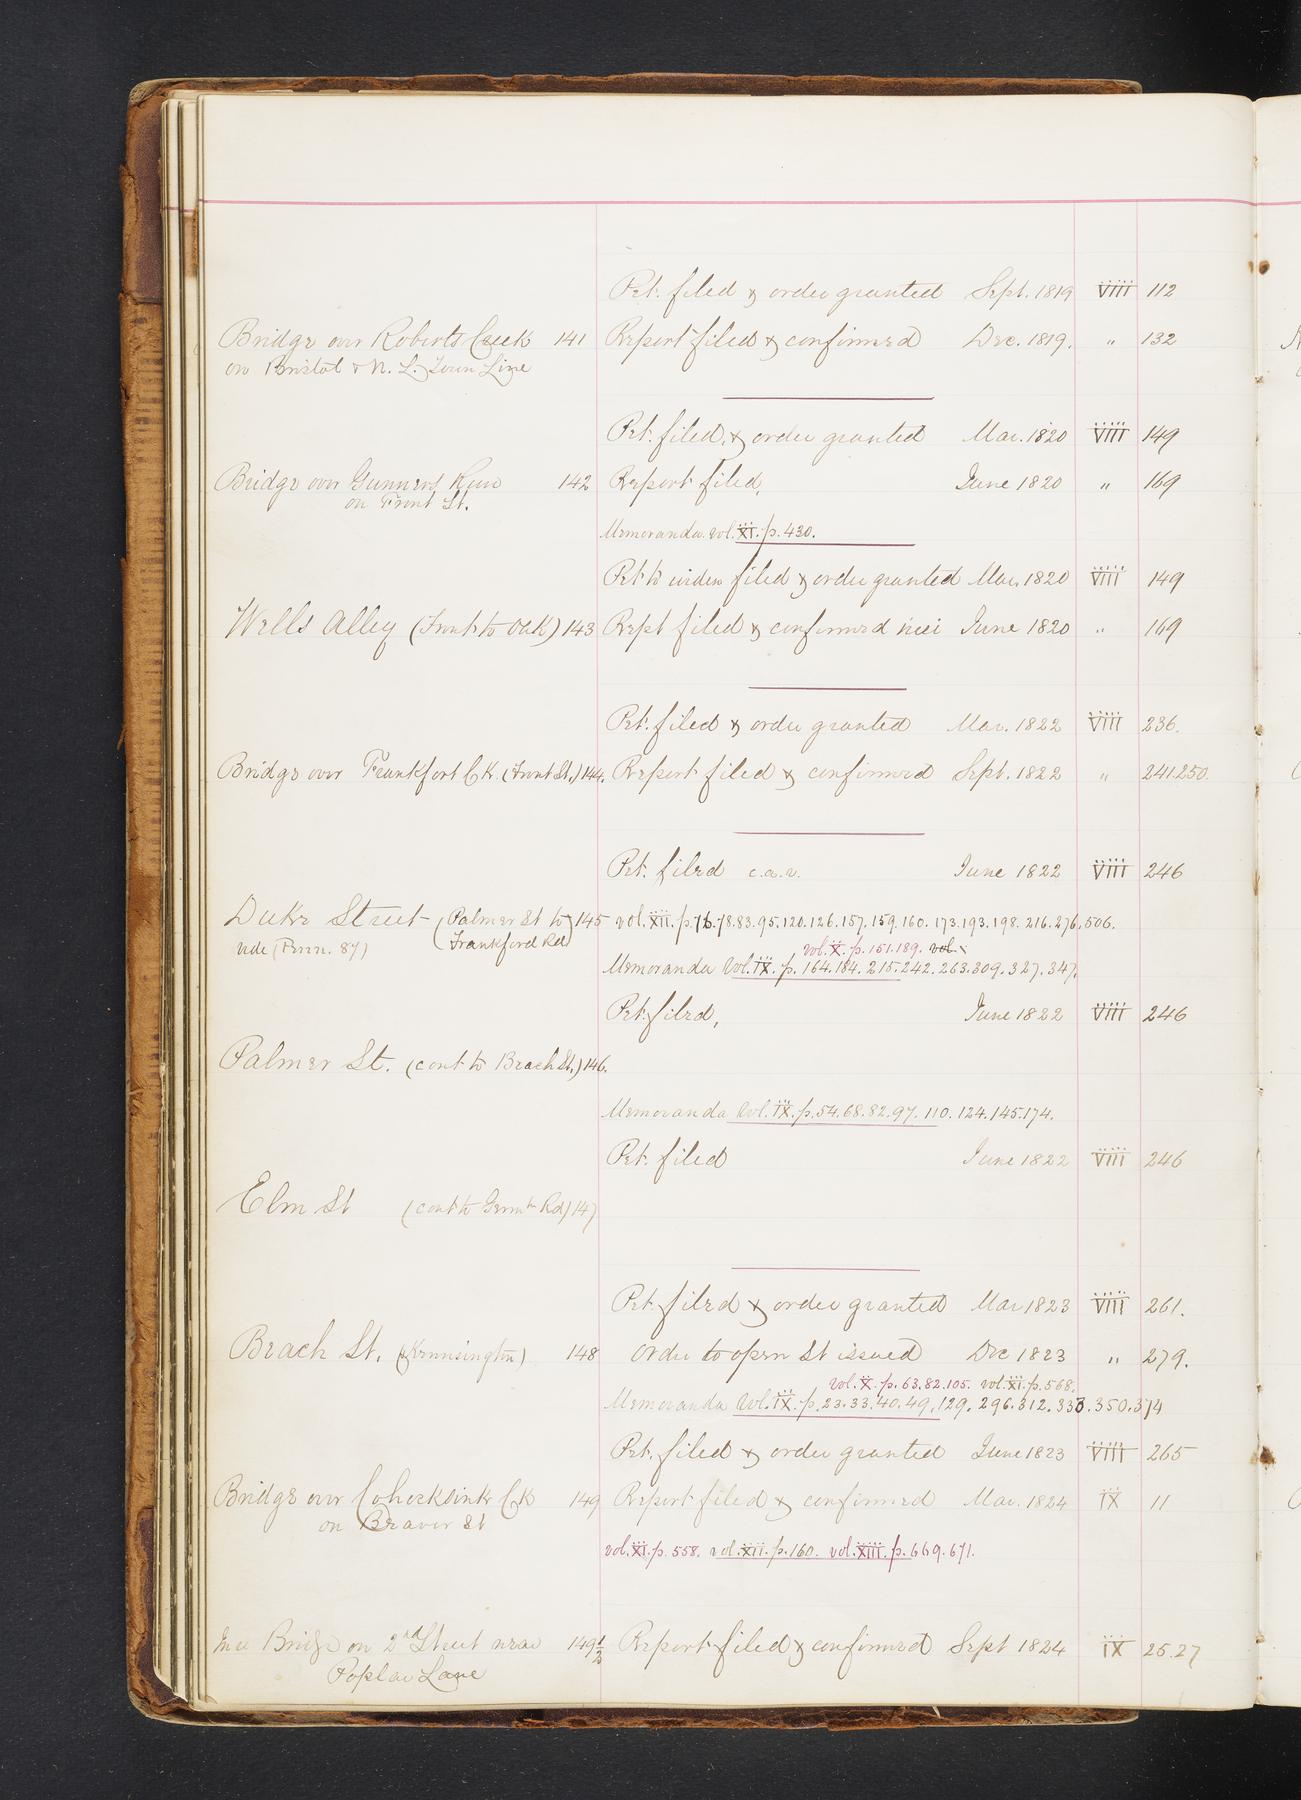 Pet. filed & order granted Sept. 1819 VIII 112
Bridge over Roberts Creek 141 Report filed & confirmed Dec. 1819. " 132
on Bristol & N. L. Town Line
Pet. filed, & order granted Mar. 1820 VIII 149
Bridge over Gunners Run 142 Report filed, June 1820 " 169
on Front St.
Memoranda vol. XI. p. 430.
Pet to widen filed & order granted Mar. 1820 VIII 149
Wells Alley (Front to Oak) 143 Rept filed & confirmed nisi June 1820 " 169
Pet. filed & order granted Mar. 1822 VIII 236.
Bridge over Frankfort Ck. (Front St.) 144. Report filed & confirmed Sept. 1822 " 241.250.
Pet. filed c.a.v. June 1822 VIII 246
Duke Street (Palmer St to 145 vol. XII. p. 76.78.83.95.120.126.157.159.160.173.193.198.216.276.506.
vide (Penn. 87) Frankford Rd)
vol. X. p. 151.189. vol.
Memoranda Vol. IX. p. 164.184.215.242.263.309.327.347.
Pet filed, June 1822 VIII 246
Palmer St. (cont to Beach St.) 146.
Memoranda Vol. IX. p. 54.68.82.97.110.124.145.174.
Pet. filed June 1822 VIII 246
Elm St (cont to Germtn Rd) 147
Pet. filed & order granted Mar 1823 VIII 261.
Beach St. (Kennsington) 148 Order to open St issued Dec 1823 " 279.
vol. X. p. 63.82.105. vol. XI. p. 568.
Memoranda Vol. IX. p. 23.33.40.49.129.296.312.333.350.374
Pet. filed & order granted June 1823 VIII 265
Bridge over Cohocksink Ck 149 Report filed & confirmed Mar. 1824 IX 11
on Beaver St
vol. XI. p. 558. vol. XII. p. 160. vol. XIII. p. 669.671.
Bridge on 2nd Street near 149½ Report filed & confirmed Sept 1824 IX 25.27
Poplar Lane